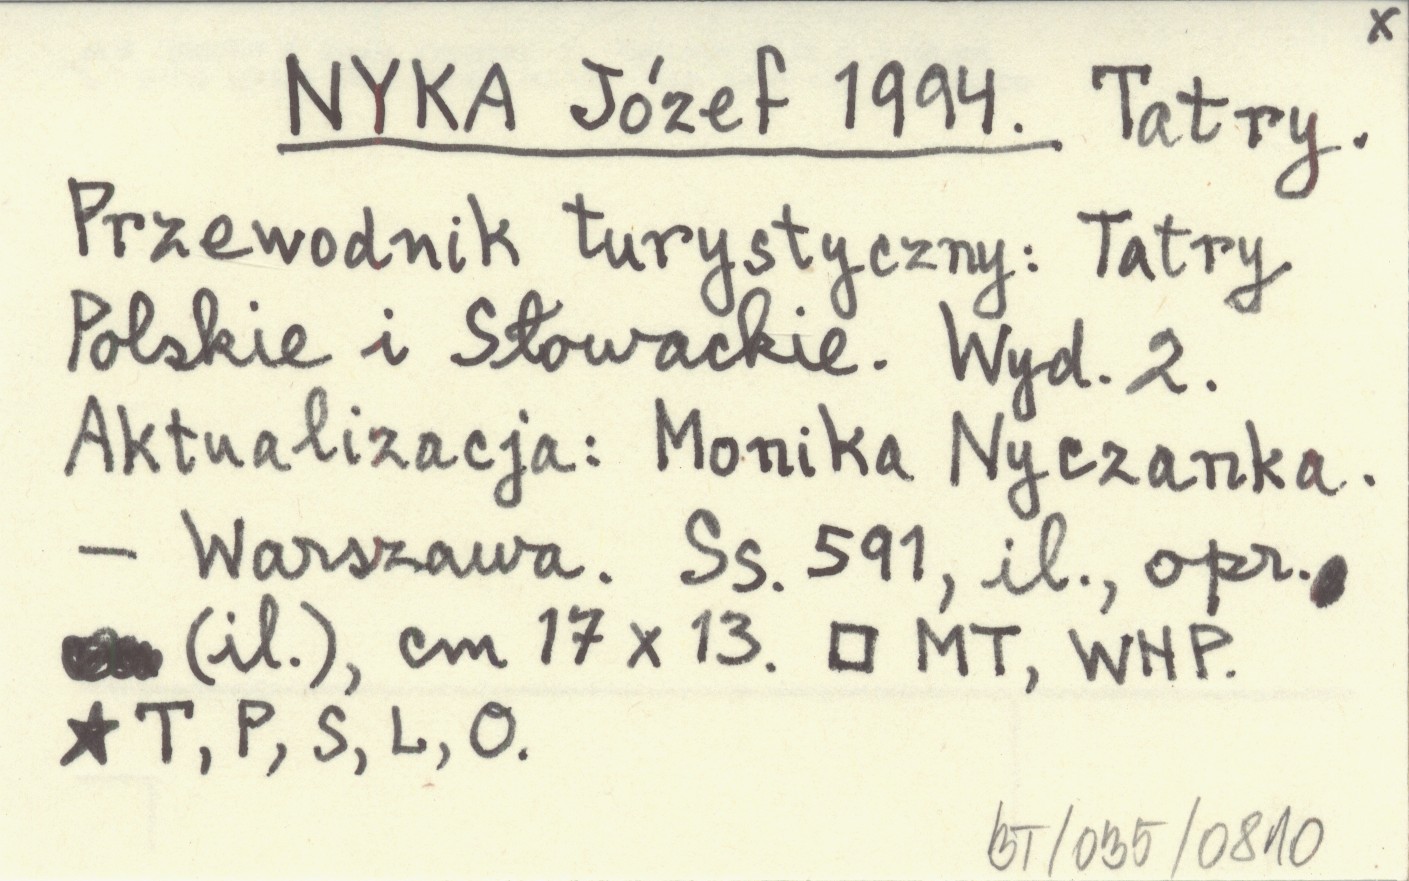 x
NYKA Józef 1994. Tatry.
Przewodnik turystyczny: Tatry
Polskie i Słowackie. Wyd. 2.
Aktualizacja: Monika Nyczanka.
— Warszawa. Ss. 591, il., opr.
(il.), cm 17 x 13. □ MT, WHP.
★ T, P, S, L, O.
BT/035/0810